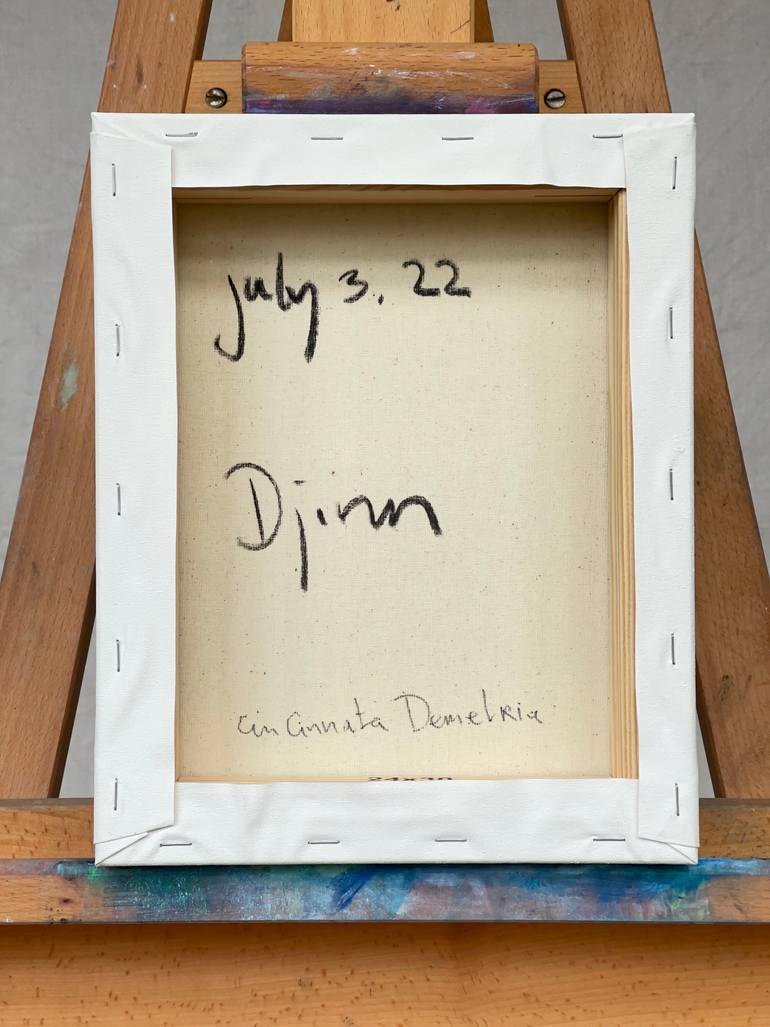 July 3. 22
Djinn
Cincinnata Demetria
24x30